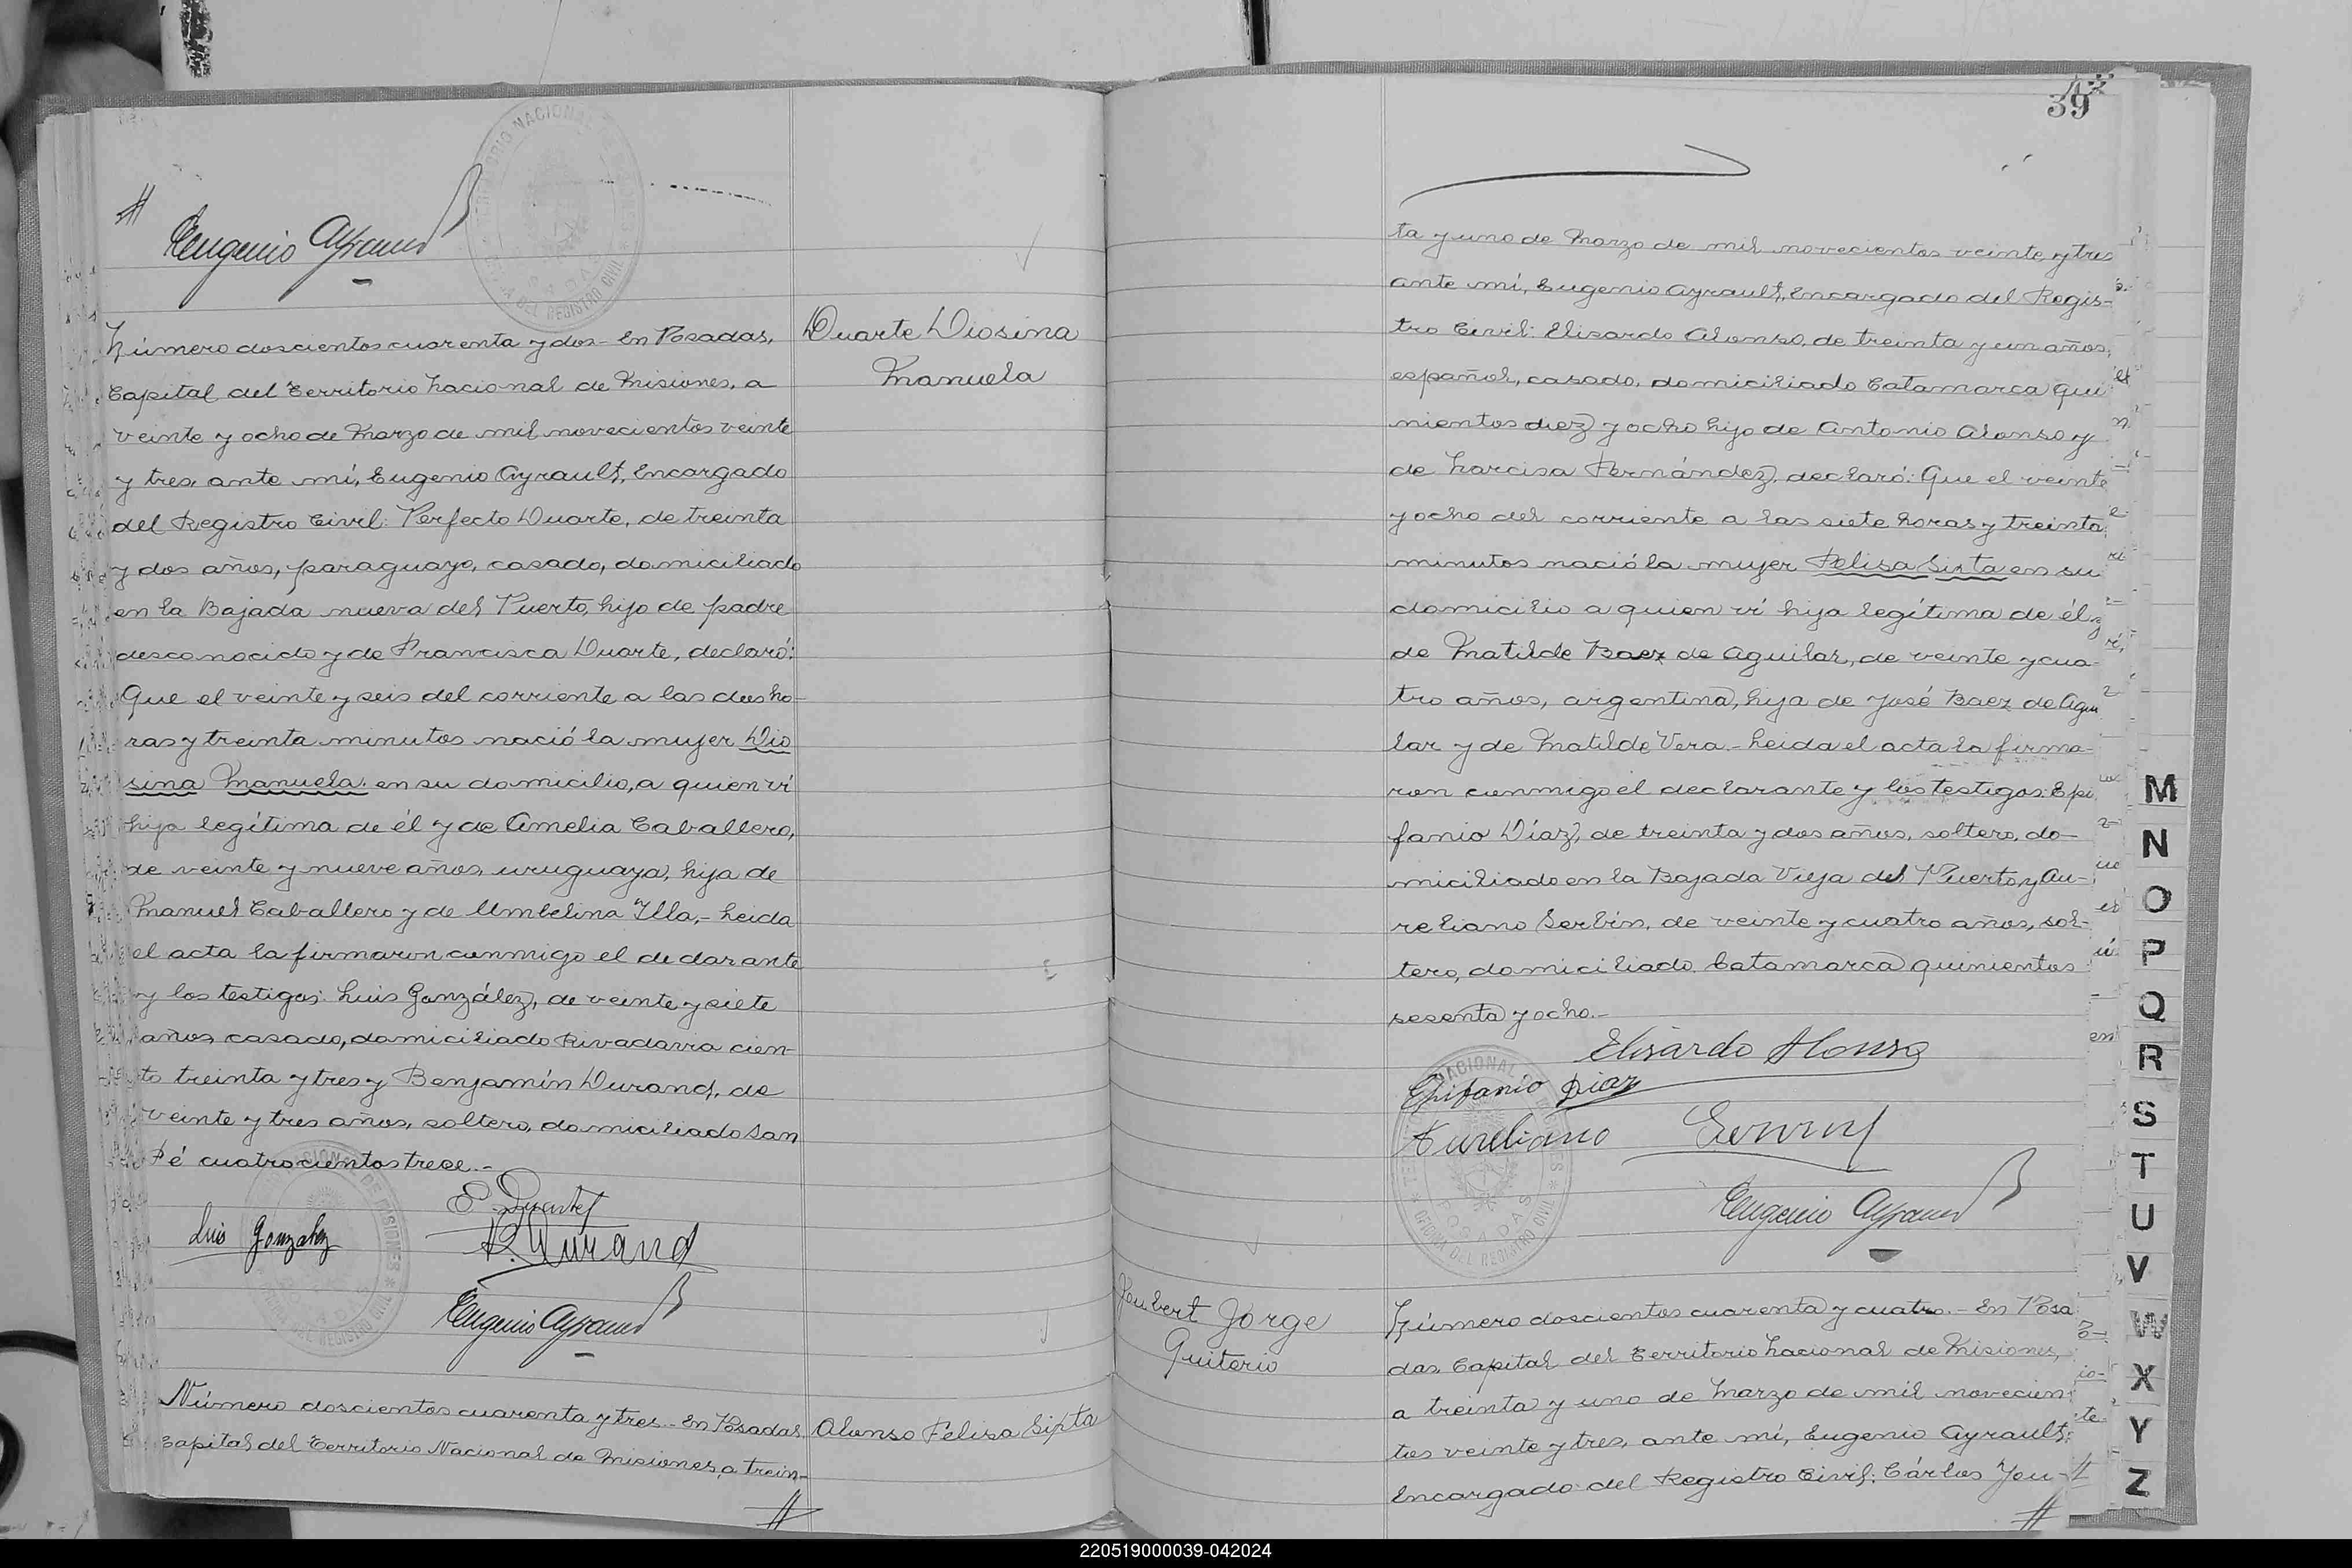 #
Eugenio Ayrault
Número doscientos cuarenta y dos - En Posadas,
Capital del Territorio Nacional de Misiones, a
veinte y ocho de Marzo de mil novecientos veinte
y tres, ante mí, Eugenio Ayrault, Encargado
del Registro Civil: Perfecto Duarte, de treinta
y dos años, paraguayo, casado, domiciliado
en la Bajada nueva del Puerto, hijo de padre
desconocido y de Francisca Duarte, declaró:
Que el veinte y seis del corriente a las dos ho-
ras y treinta minutos nació la mujer Dio
sina Manuela en su domicilio, a quien ví
hija legítima de él y de Amelia Caballero,
de veinte y nueve años, uruguaya, hija de
Manuel Caballero y de Umbelina Illa,- Leida
el acta la firmaron conmigo el declarante
y los testigos: Luis González, de veinte y siete
años, casado, domiciliado Rivadavia cien-
to treinta y tres y Benjamín Durand, de
veinte y tres años, soltero, domiciliado San
Fé cuatrocientos trece.-
P. Duarte
Luis Gonzalez
B. Durand
Eugenio Ayrault
Número doscientos cuarenta y tres.- En Posadas
Capital del Territorio Nacional de Misiones, a trein-
#
Duarte Diosina
Manuela
Alonso Felisa Sixta
39
ta y uno de Marzo de mil novecientos veinte y tres
ante mí, Eugenio Ayrault, Encargado del Regis-
tro Civil: Elisardo Alonso, de treinta y un años,
español, casado, domiciliado Catamarca qui
nientos diez y ocho hijo de Antonio Alonso y
de Narcisa Fernández, declaró: Que el veinte
y ocho del corriente a las siete horas y treinta
minutos nació la mujer Felisa Sixta en su
domicilio a quien ví hija legítima de él y
de Matilde Baez de Aguilar, de veinte y cua-
tro años, argentina, hija de José Baez de Agui
lar y de Matilde Vera.- Leida el acta la firma-
ron conmigo el declarante y los testigos: Epi
fanio Díaz, de treinta y dos años, soltero, do-
miciliado en la Bajada Vieja del Puerto, y Au-
reliano Serbín, de veinte y cuatro años, sol-
tero, domiciliado Catamarca quinientos
sesenta y ocho.-
Elisardo Alonso
Epifanio Diaz
Aureliano
Eugenio Ayrault
Joubert Jorge
Quiterio
Número doscientos cuarenta y cuatro.- En Posa
das, Capital del Territorio Nacional de Misiones,
a treinta y uno de Marzo de mil novecien
tos veinte y tres, ante mí, Eugenio Ayrault,
Encargado del Registro Civil: Cárlos You-
#
M
N
O
P
Q
R
S
T
U
V
W
X
Y
Z
220519000039-042024